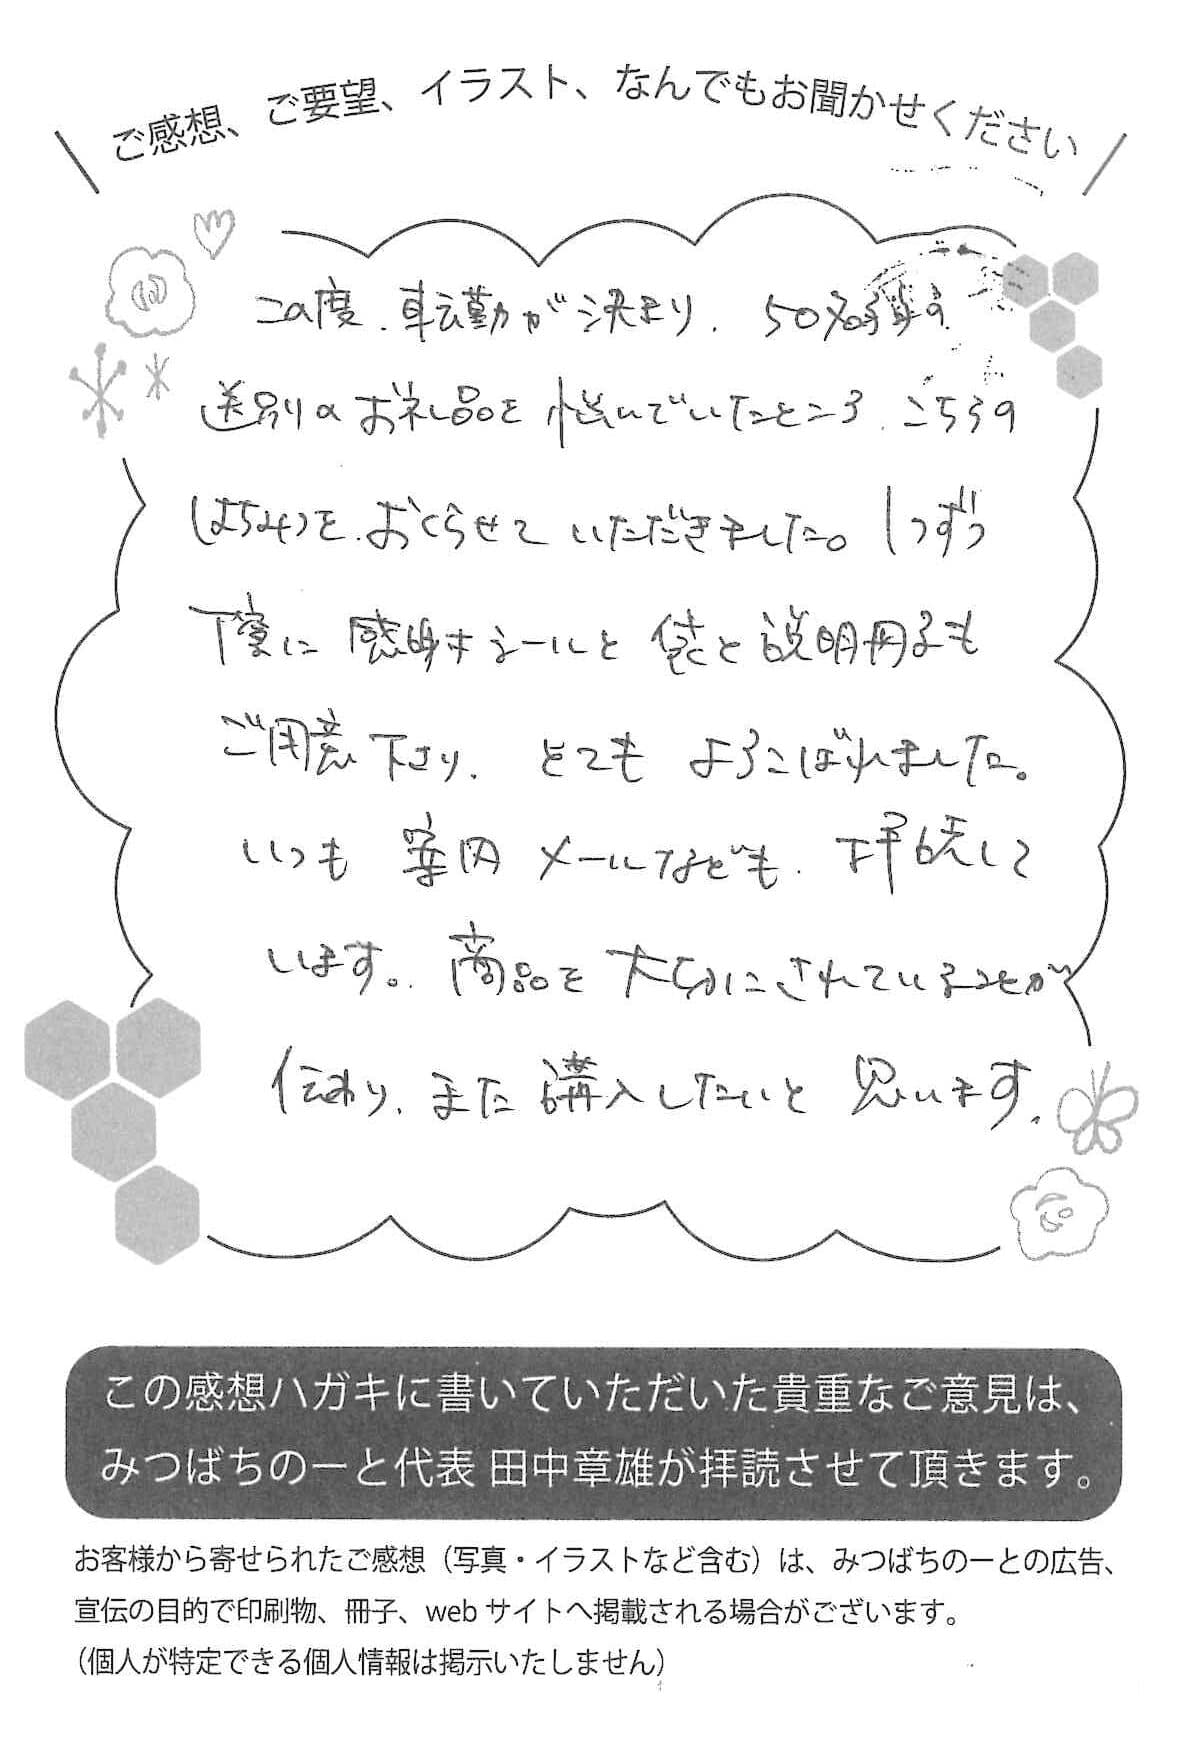 ご感想、ご要望、イラスト、なんでもお聞かせください
この度、転勤が決まり、50名様
送別のお礼品を悩んでいたところ、こちらの
はちみつを、おくらせていただきました。1つずつ
丁寧に感謝シールと袋と説明冊子も
ご用意下さり、とてもよろこばれました。
いつも案内メールなども、拝読して
います。商品を大切にされていることが
伝わり、また購入したいと思います。
この感想ハガキに書いていただいた貴重なご意見は、
みつばちのーと代表 田中章雄が拝読させて頂きます。
お客様から寄せられたご感想（写真・イラストなど含む）は、みつばちのーとの広告、
宣伝の目的で印刷物、冊子、webサイトへ掲載される場合がございます。
（個人が特定できる個人情報は掲示いたしません）